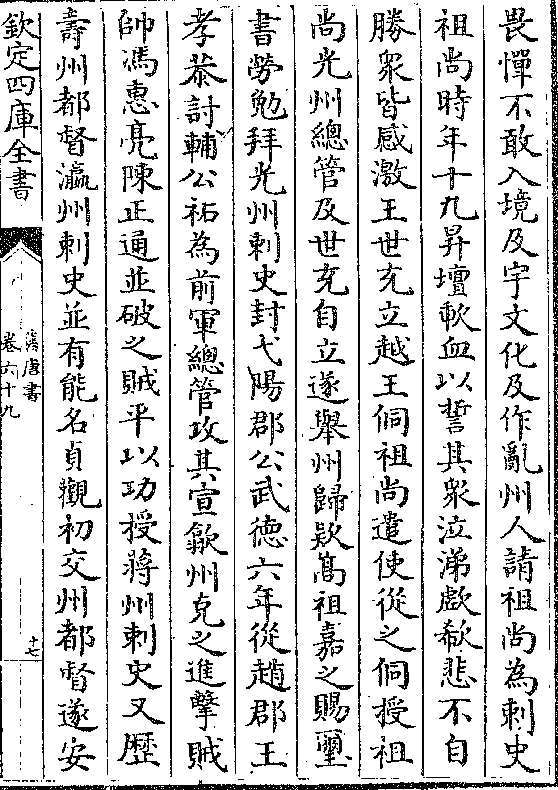 畏憚不敢入境及宇文化及作亂州人請祖尚為刺史
祖尚時年十九昇壇歃血以誓其衆泣涕歔欷悲不自
勝衆皆感激王世充立越王侗祖尚遣使從之侗授祖
尚光州總管及世充自立遂舉州歸欵髙祖嘉之賜璽
書勞勉拜光州刺史封弋陽郡公武徳六年從趙郡王
孝恭討輔公祏為前軍總管攻其宣歙州克之進擊賊
帥馮惠亮陳正通並破之賊平以功授蔣州刺史又歴
壽州都督瀛州刺史並有能名貞觀初交州都督遂安
欽定四庫全書
舊唐書
卷六十九
十七